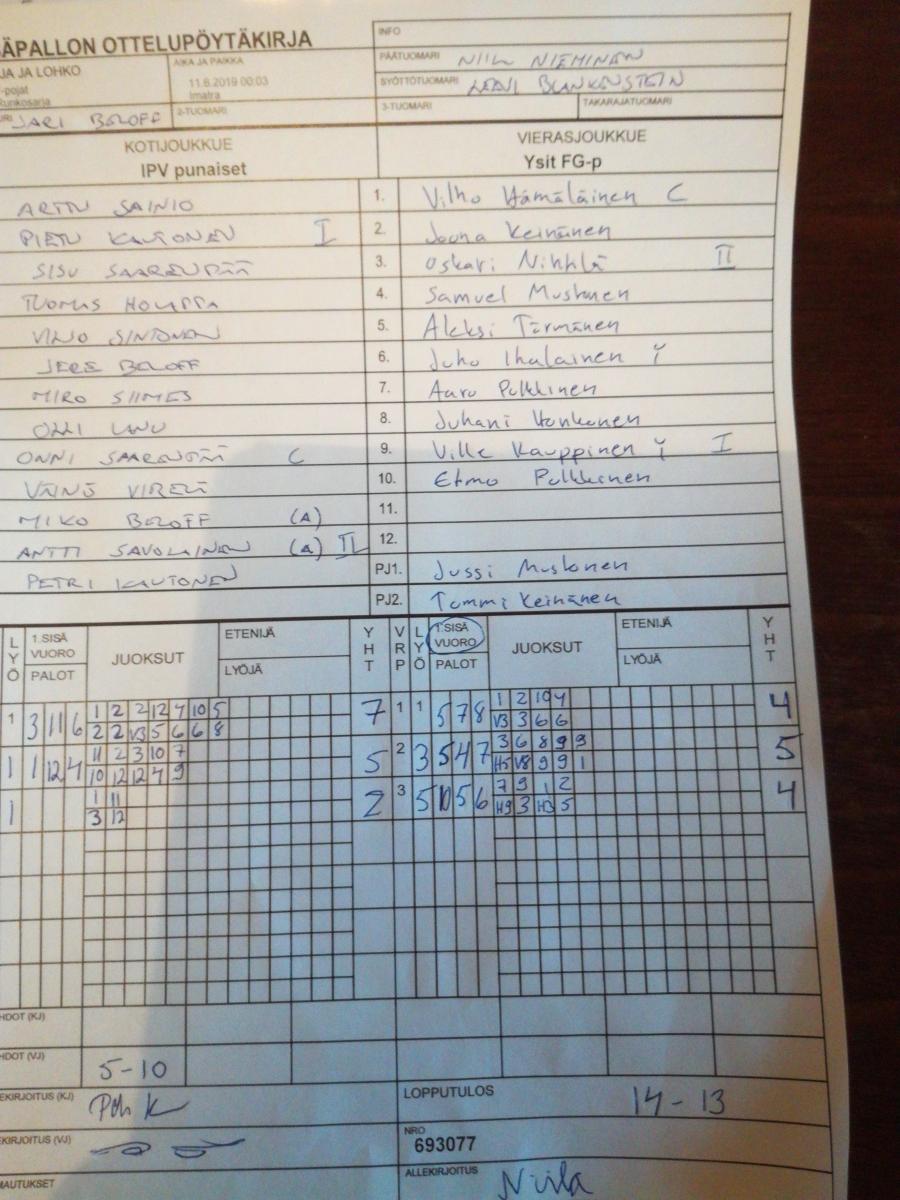 SÄPALLON OTTELUPÖYTÄKIRJA
INFO
PÄÄTUOMARI NIILA NIEMINEN
JA JA LOHKO AIKA JA PAIKKA
SYÖTTÖTUOMARI LEEVI BLANKENSTEIN
-pojat 11.6.2019 00:03
Runkosarja Imatra
3-TUOMARI TAKARAJATUOMARI
JARI BELOFF 2-TUOMARI
KOTIJOUKKUE VIERASJOUKKUE
IPV punaiset Ysit FG-p
ARTTU SAINIO 1. Vilho Hämäläinen C
PIETU KAUTONEN I 2. Joona Keinänen
SISU SAARENPÄÄ 3. Oskari Nihtilä II
TUOMAS HOLAPPA 4. Samuel Mustonen
VILJO SINTONEN 5. Aleksi Törmänen
JERE BELOFF 6. Juho Ihalainen j
MIRO SIIMES 7. Aaro Pulkkinen
OLLI 8. Juhani Honkanen
ONNI SAARENPÄÄ C 9. Ville Kauppinen j I
VÄINÖ VIRELÄ 10. Etmo Pulkkinen
MIKO BELOFF (A) 11.
ANTTI SAVOLAINEN (A) II 12.
PETRI KAUTONEN PJ1. Jussi Mustonen
PJ2. Tommi Keinänen
LYÖ 1.SISÄ VUORO PALOT JUOKSUT ETENIJÄ LYÖJÄ YHT VRP LYÖ 1.SISÄ VUORO PALOT JUOKSUT ETENIJÄ LYÖJÄ YHT
1 3 11 6 1 2 2 12 4 10 5 7 1 1 5 7 8 1 2 10 4 4
2 2 V3 5 6 6 8 V3 3 6 6
1 1 12 4 11 2 3 10 7 5 2 3 5 4 7 3 6 8 9 9 5
10 12 12 4 9 H5 V8 9 9 1
1 1 11 2 3 5 10 5 6 7 9 1 2 4
3 12 H9 3 H3 5
HDOT (KJ)
HDOT (VJ) 5-10
EKIRJOITUS (KJ) LOPPUTULOS 14 - 13
EKIRJOITUS (VJ) NRO
693077
MAUTUKSET ALLEKIRJOITUS Niila